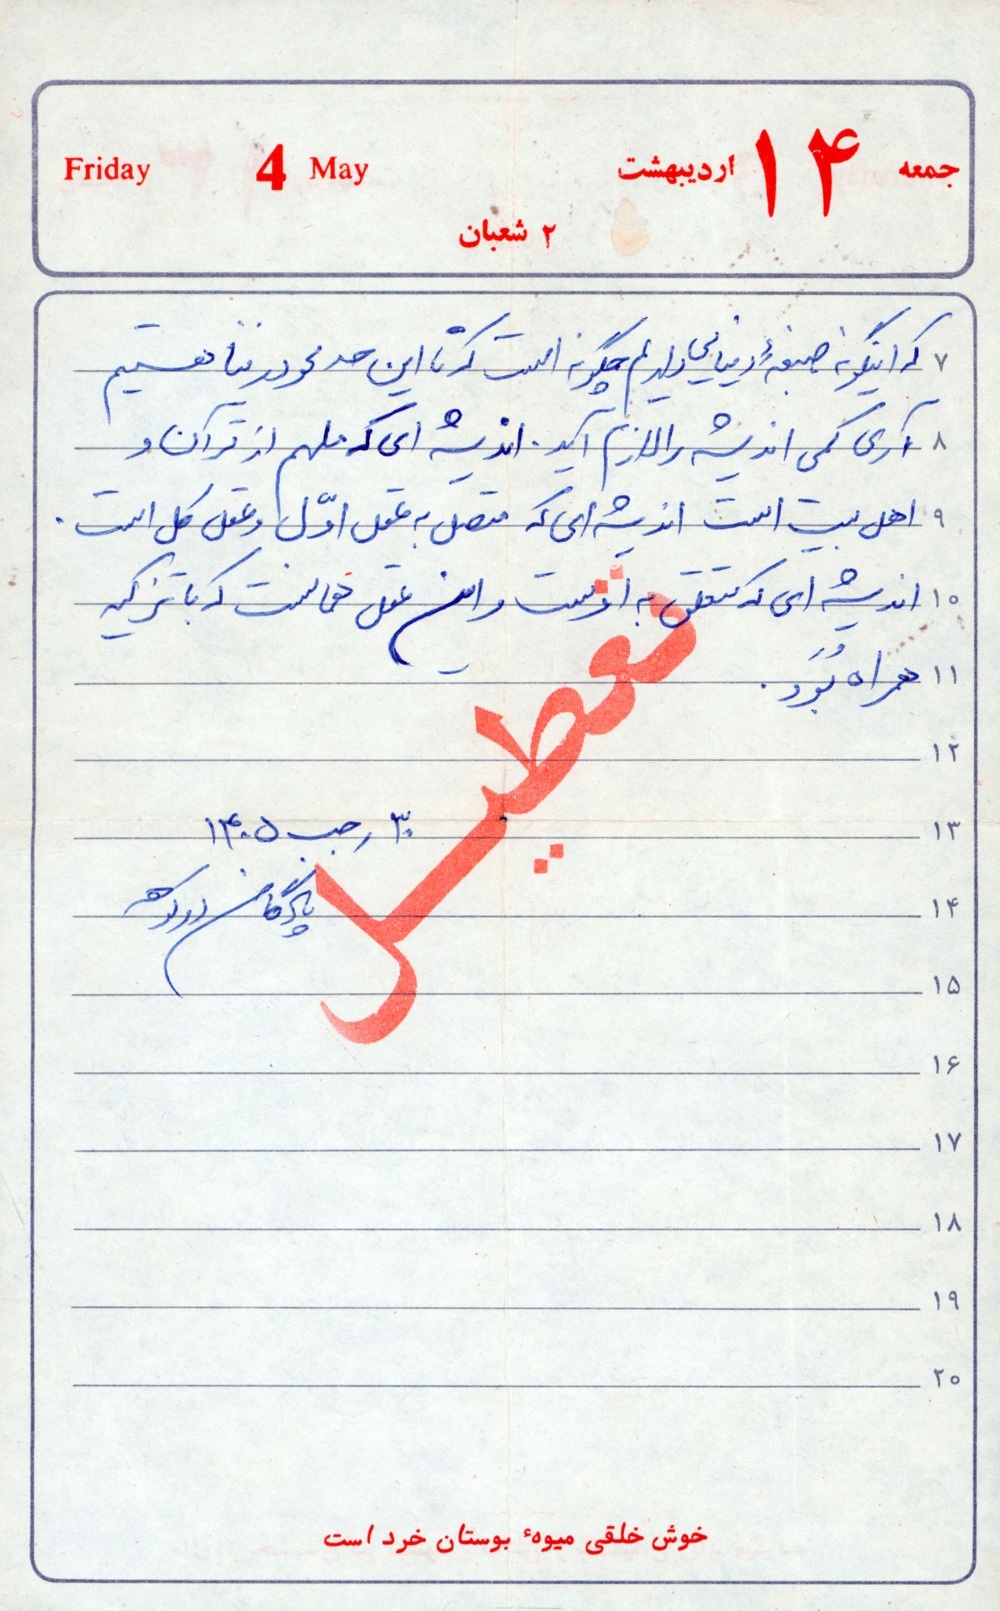 جمعه ۱۴ اردیبهشت 4 May Friday
۲ شعبان
۷ که اینگونه صبغهٔ زیبایی داریم چگونه است که تا این حد محو در بقا هستیم
۸ آری کمی اندیشه را لازم آید. اندیشه ای که ملهم از قرآن و
۹ اهل بیت است اندیشه ای که متصل به عقل اوّل و عقل کل است.
۱۰ اندیشه ای که متعلق به اوست و این عقل همانست که با تزکیه
۱۱ همراه بُوَد.
۱۲
۱۳ ۳۰ رجب ۱۴۰۵
۱۴ پادگان دوکوهه
۱۵
۱۶
۱۷
۱۸
۱۹
۲۰
تعطیل
خوش خلقی میوهٔ بوستان خرد است